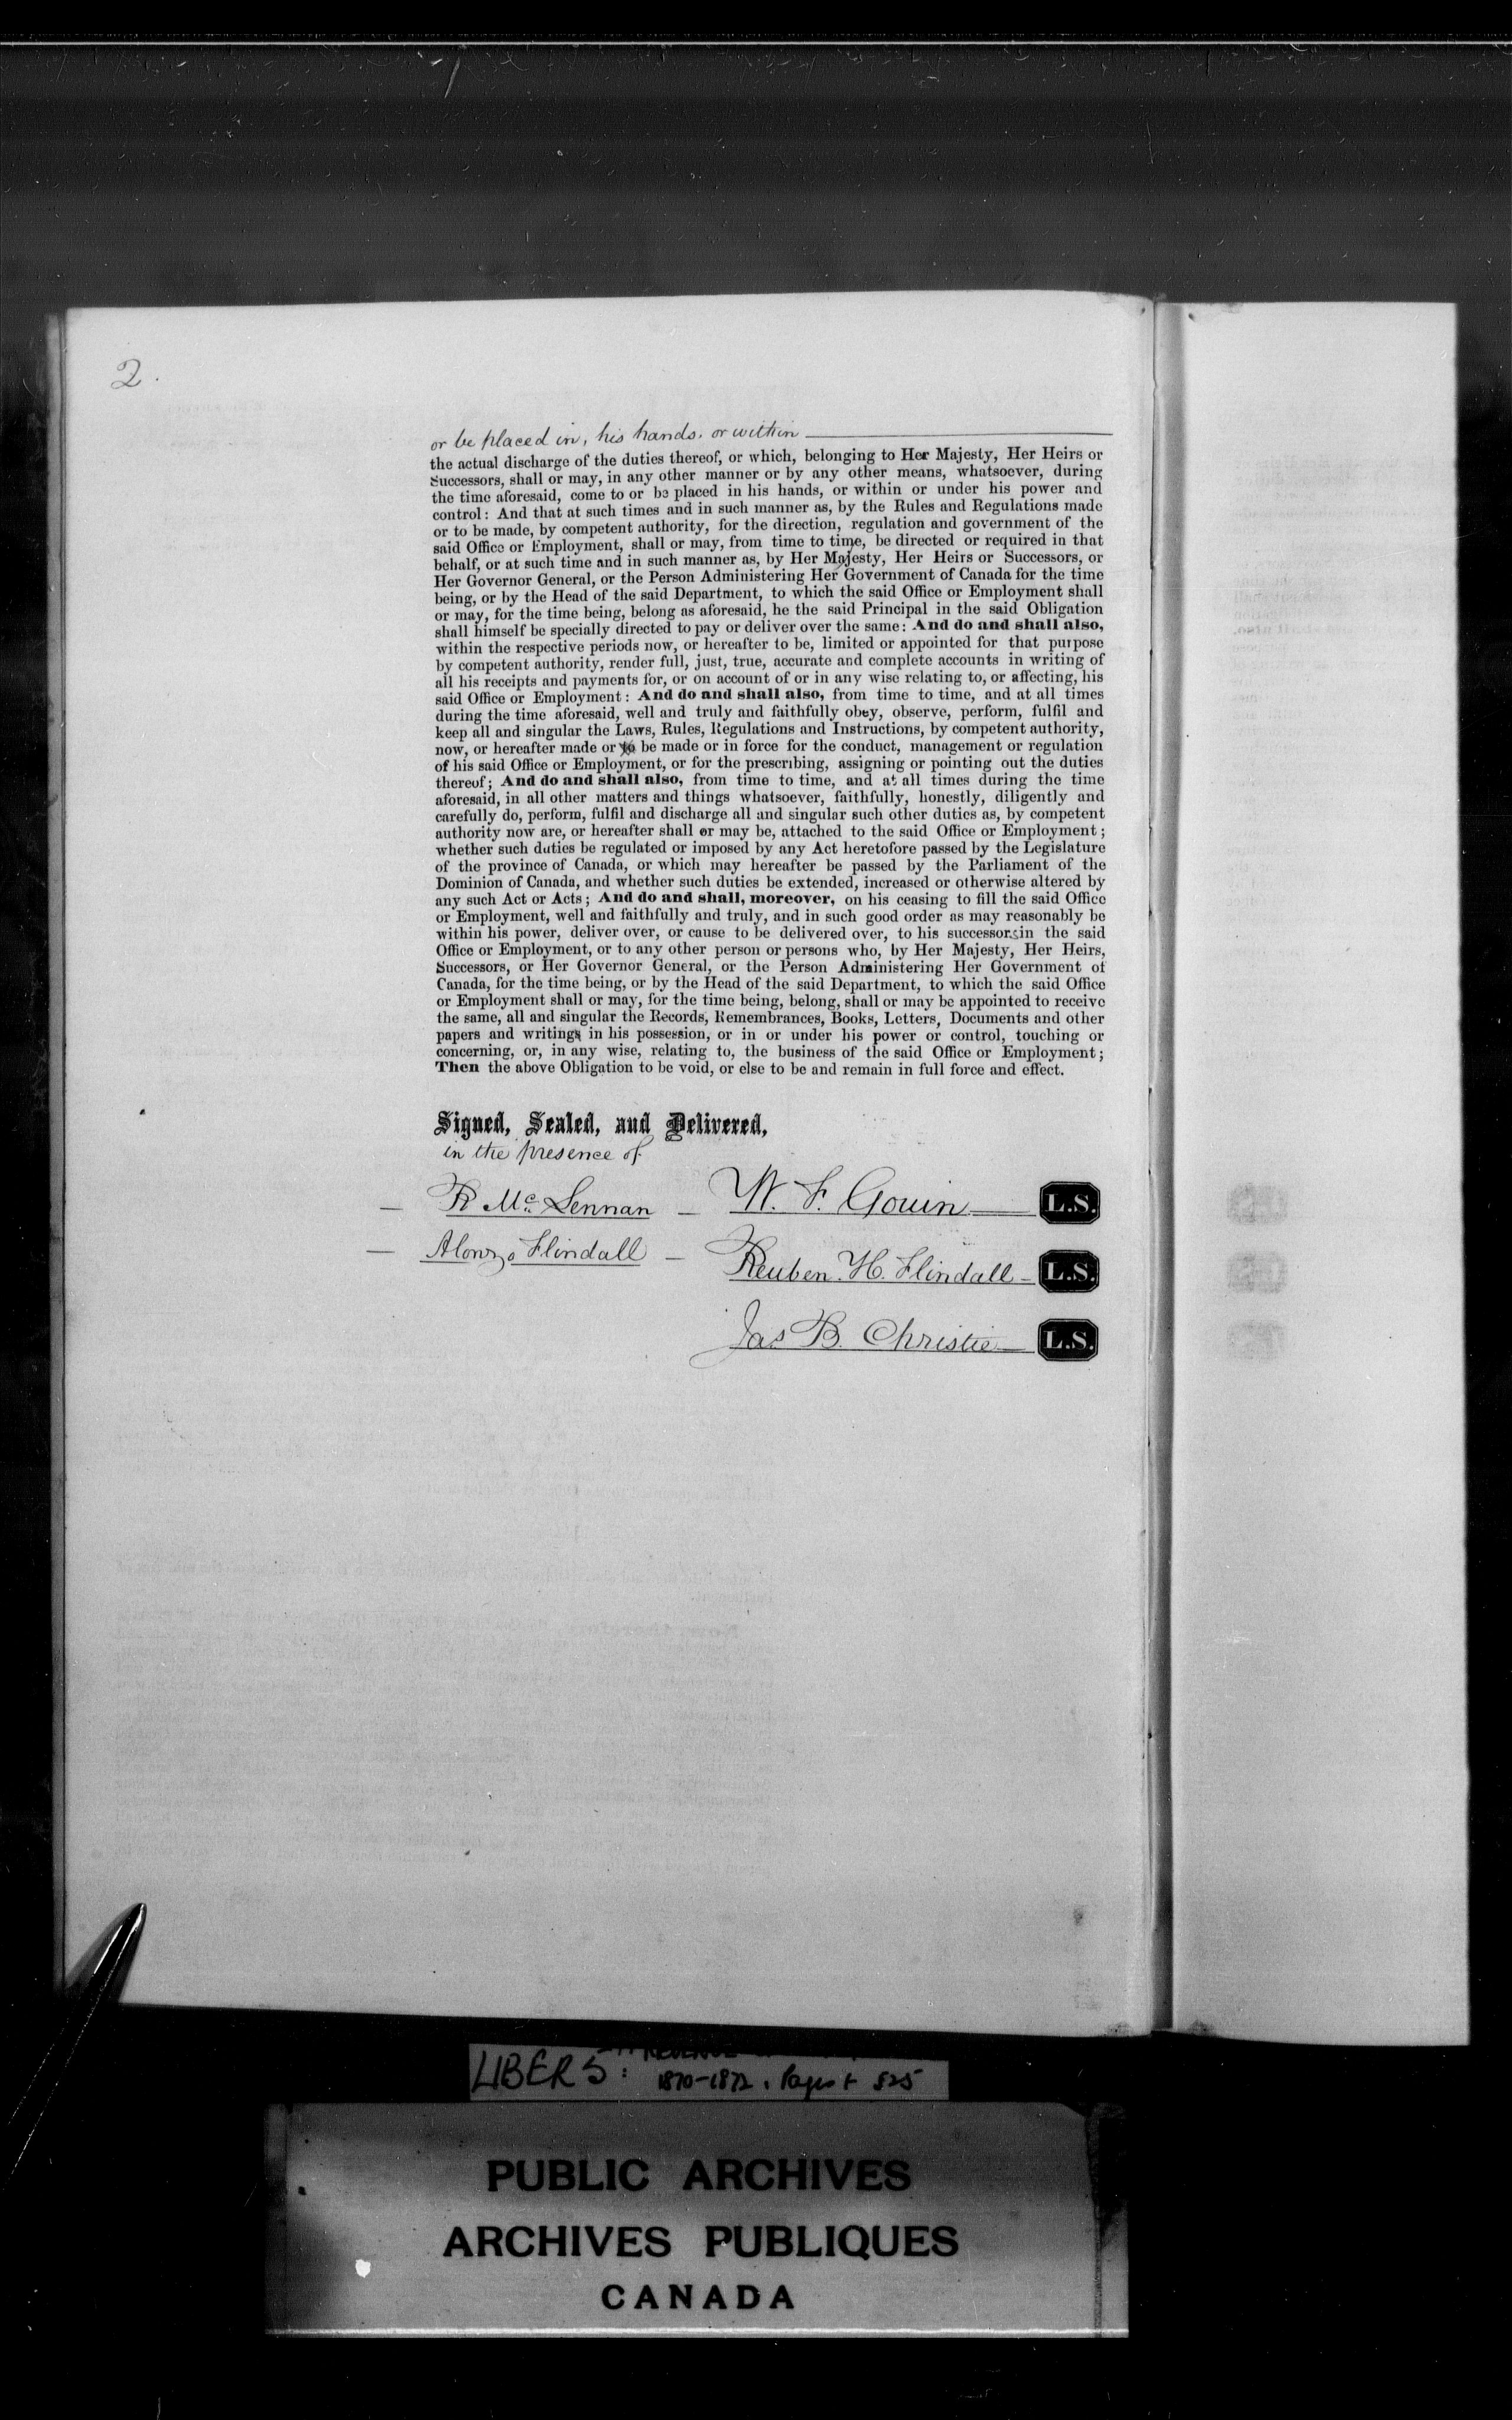 2.
or be placed in, his hands, or within
the actual discharge of the duties thereof, or which, belonging to Her Majesty, Her Heirs or
Successors, shall or may, in any other manner or by any other means, whatsoever, during
the time aforesaid, come to or be placed in his hands, or within or under his power and
control: And that at such times and in such manner as, by the Rules and Regulations made
or to be made, by competent authority, for the direction, regulation and government of the
said Office or Employment, shall or may, from time to time, be directed or required in that
behalf, or at such time and in such manner as, by Her Majesty, Her Heirs or Successors, or
Her Governor General, or the Person Administering Her Government of Canada for the time
being, or by the Head of the said Department, to which the said Office or Employment shall
or may, for the time being, belong as aforesaid, he the said Principal in the said Obligation
shall himself be specially directed to pay or deliver over the same: And do and shall also,
within the respective periods now, or hereafter to be, limited or appointed for that purpose
by competent authority, render full, just, true, accurate and complete accounts in writing of
all his receipts and payments for, or on account of or in any wise relating to, or affecting, his
said Office or Employment: And do and shall also, from time to time, and at all times
during the time aforesaid, well and truly and faithfully obey, observe, perform, fulfil and
keep all and singular the Laws, Rules, Regulations and Instructions, by competent authority,
now, or hereafter made or to be made or in force for the conduct, management or regulation
of his said Office or Employment, or for the prescribing, assigning or pointing out the duties
thereof; And do and shall also, from time to time, and at all times during the time
aforesaid, in all other matters and things whatsoever, faithfully, honestly, diligently and
carefully do, perform, fulfil and discharge all and singular such other duties as, by competent
authority now are, or hereafter shall or may be, attached to the said Office or Employment;
whether such duties be regulated or imposed by any Act heretofore passed by the Legislature
of the province of Canada, or which may hereafter be passed by the Parliament of the
Dominion of Canada, and whether such duties be extended, increased or otherwise altered by
any such Act or Acts; And do and shall, moreover, on his ceasing to fill the said Office
or Employment, well and faithfully and truly, and in such good order as may reasonably be
within his power, deliver over, or cause to be delivered over, to his successors in the said
Office or Employment, or to any other person or persons who, by Her Majesty, Her Heirs,
Successors, or Her Governor General, or the Person Administering Her Government of
Canada, for the time being, or by the Head of the said Department, to which the said Office
or Employment shall or may, for the time being, belong, shall or may be appointed to receive
the same, all and singular the Records, Remembrances, Books, Letters, Documents and other
papers and writings in his possession, or in or under his power or control, touching or
concerning, or, in any wise, relating to, the business of the said Office or Employment;
Then the above Obligation to be void, or else to be and remain in full force and effect.
Signed, Sealed, and Delivered,
in the presence of
R McLennan – W. F. Gouin L.S.
Alonzo Flindall – Reuben. H. Flindall – L.S.
Jas B. Christie L.S.
LIBER 5:
1870-1872. Pages 525
PUBLIC ARCHIVES
ARCHIVES PUBLIQUES
CANADA